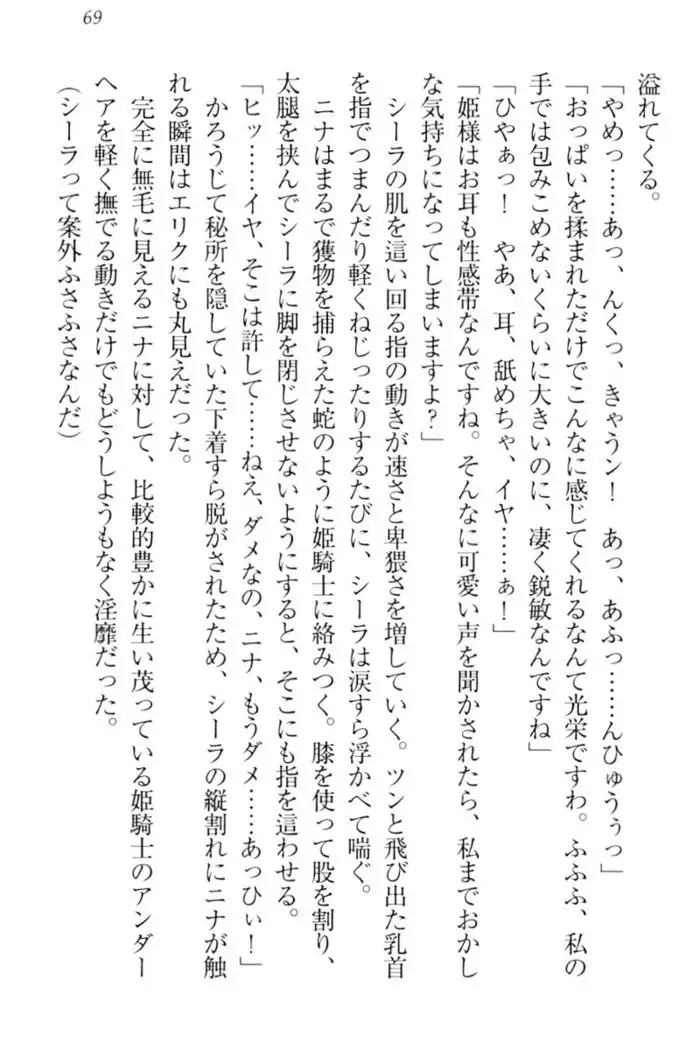 69
溢れてくる。
「やめっ……あっ、んくっ、きゃうン！　あっ、あふっ……んひゅうぅっ」
「おっぱいを揉まれただけでこんなに感じてくれるなんて光栄ですわ。ふふふ、私の
手では包みこめないくらいに大きいのに、凄く鋭敏なんですね」
「ひやぁっ！　やあ、耳、舐めちゃ、イヤ……ぁ！」
「姫様はお耳も性感帯なんですね。そんなに可愛い声を聞かされたら、私までおかし
な気持ちになってしまいますよ？」
シーラの肌を這い回る指の動きが速さと卑猥さを増していく。ツンと飛び出た乳首
を指でつまんだり軽くねじったりするたびに、シーラは涙すら浮かべて喘ぐ。
ニナはまるで獲物を捕らえた蛇のように姫騎士に絡みつく。膝を使って股を割り、
太腿を挟んでシーラに脚を閉じさせないようにすると、そこにも指を這わせる。
「ヒッ……イヤ、そこは許して……ねえ、ダメなの、ニナ、もうダメ……あっひぃ！」
かろうじて秘所を隠していた下着すら脱がされたため、シーラの縦割れにニナが触
れる瞬間はエリクにも丸見えだった。
完全に無毛に見えるニナに対して、比較的豊かに生い茂っている姫騎士のアンダー
ヘアを軽く撫でる動きだけでもどうしようもなく淫靡だった。
（シーラって案外ふさふさなんだ）